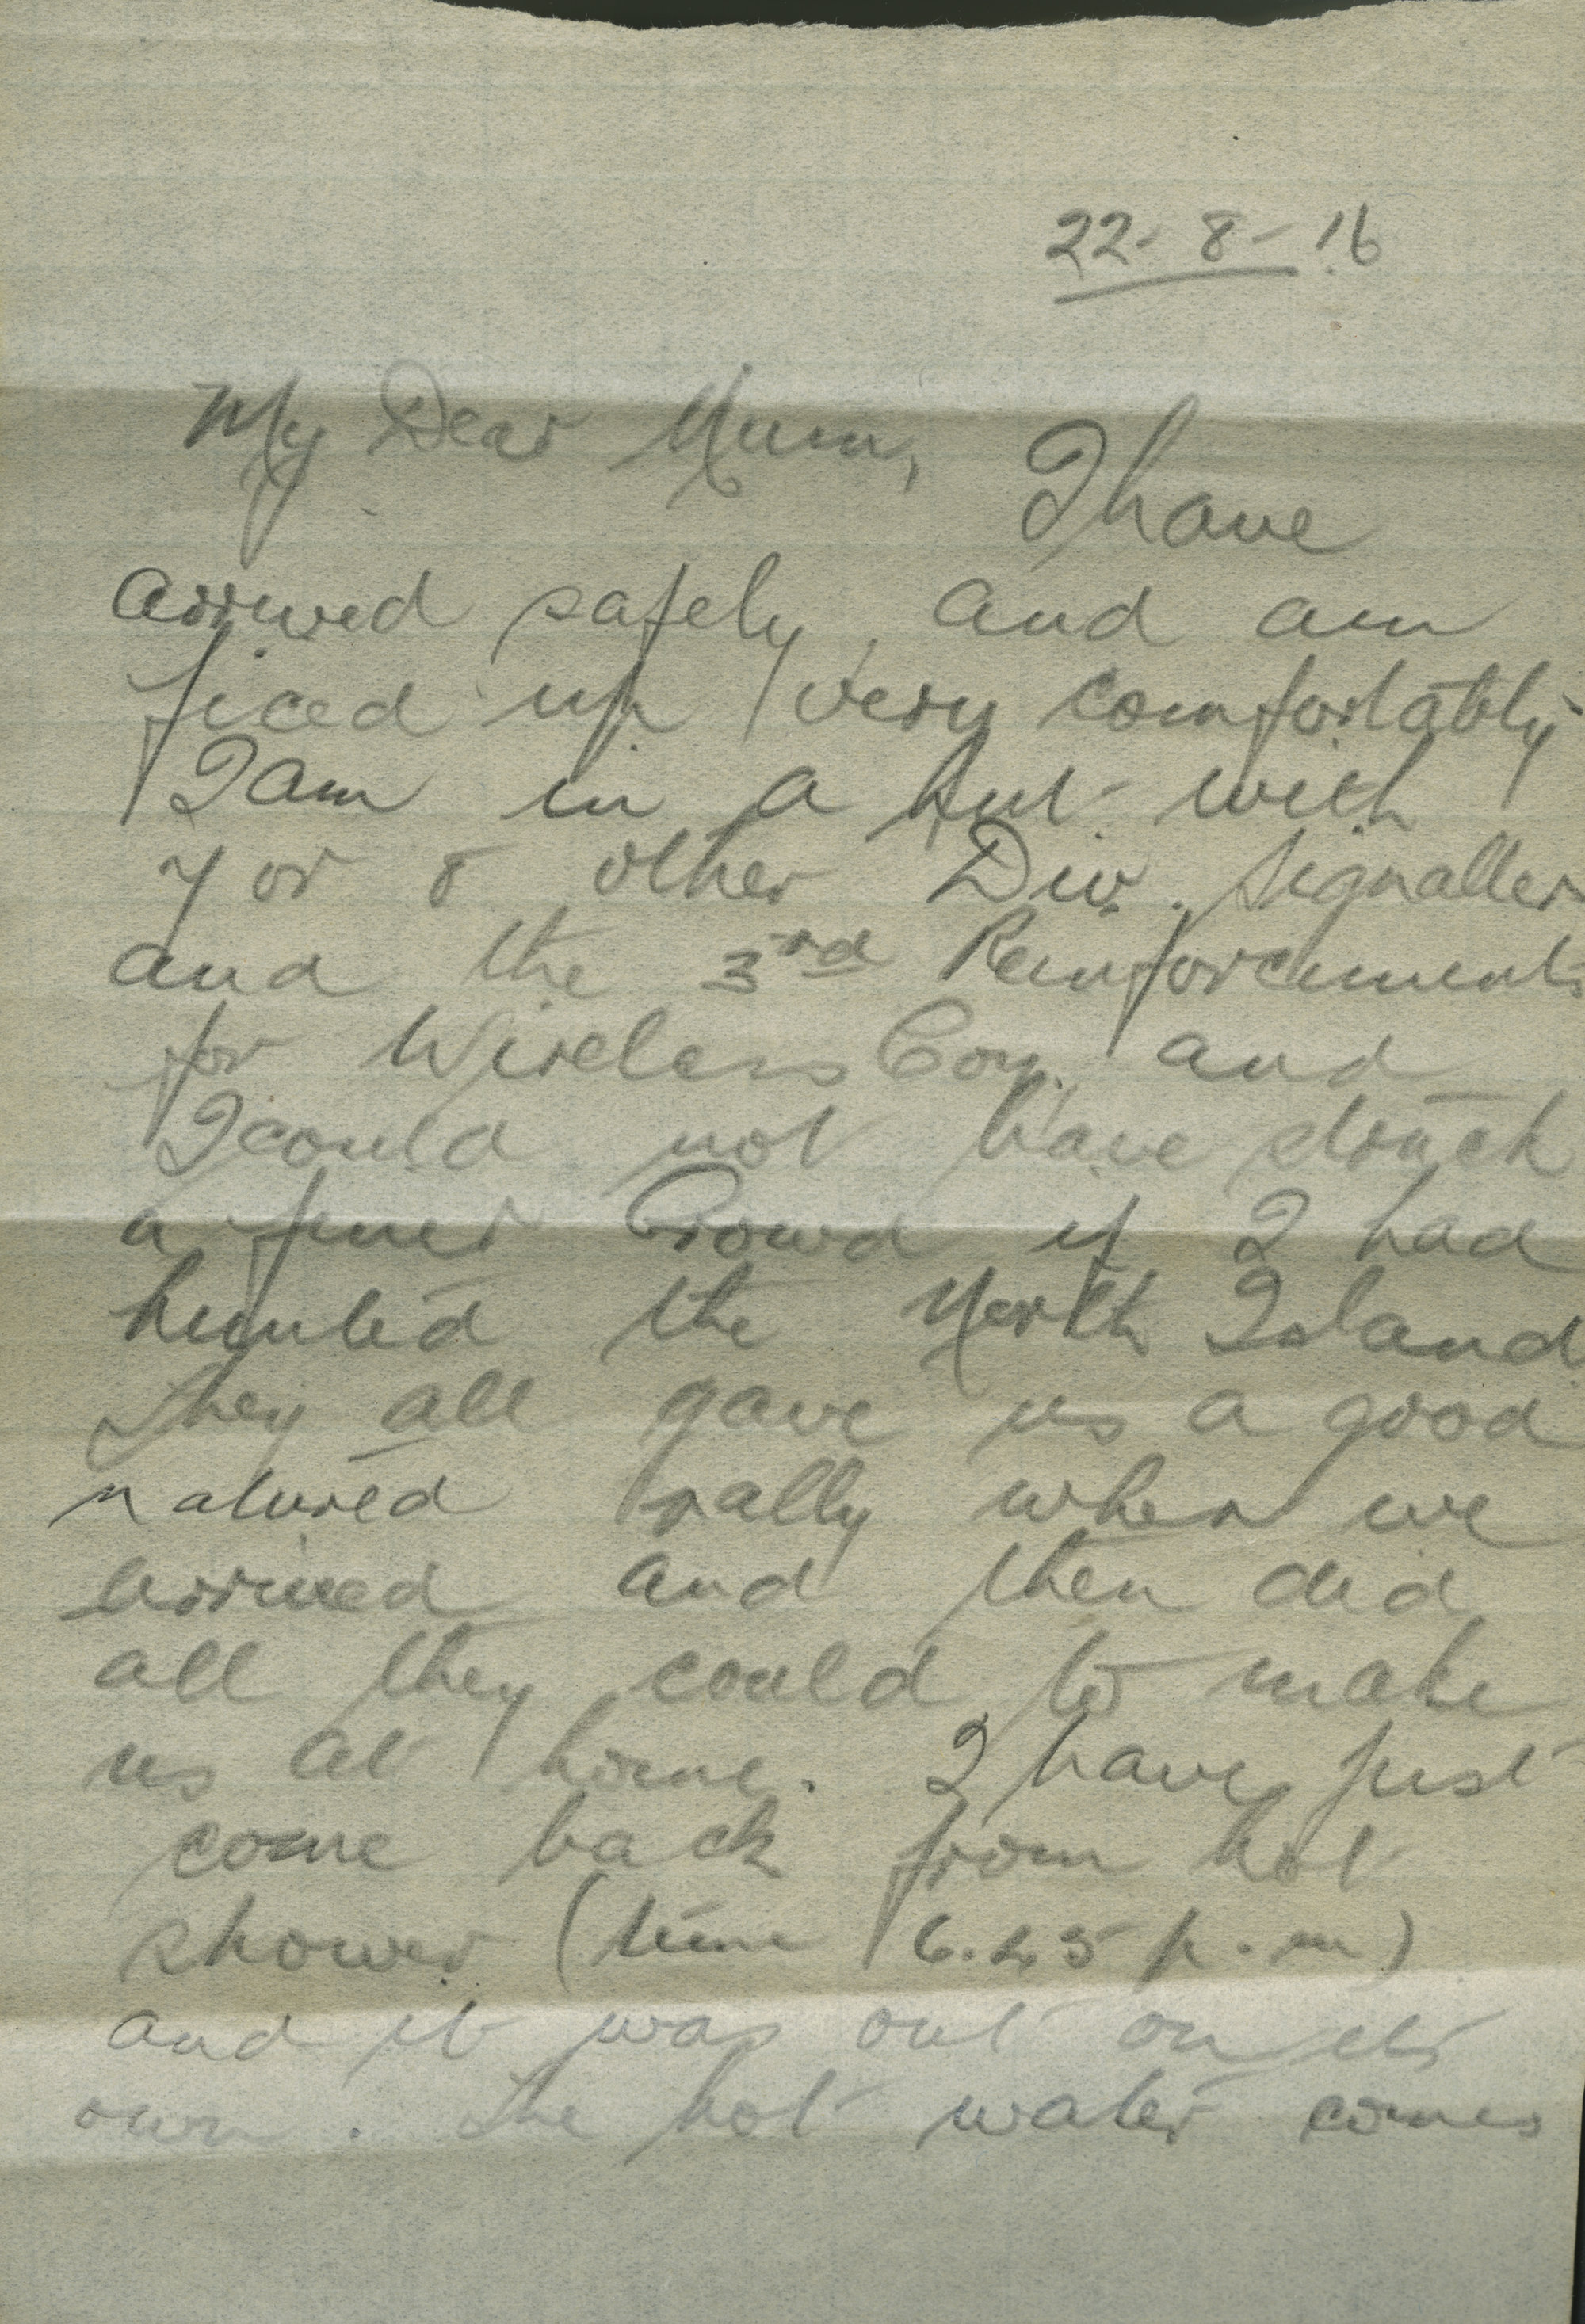 22-8-16
My Dear Mum, I have
arrived safely, and am
fixed up very comfortably
I am in a hut with
7 or 8 other Div. Signallers
and the 3rd Reinforcements
for Wireless Coy. and
I could not have struck
a finer Crowd if I had
hunted the North Island.
They all gave us a good
natured rally when we
arrived and then did
all they could to make
us at home. I have just
come back from hot
shower (time 6.45 p.m)
and it was out on its
own. The hot water comes